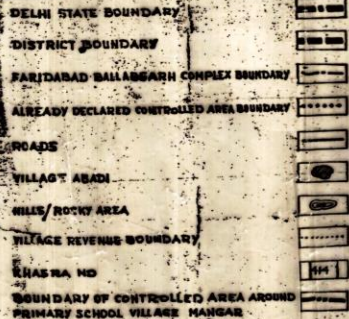 DELHI STATE BOUNDARY
DISTRICT BOUNDARY
FARIDABAD BALLABGARH COMPLEX BOUNDARY
ALREADY DECLARED CONTROLLED AREA BOUNDARY
ROADS
VILLAGE ABADI
HILLS/ROCKY AREA
VILLAGE REVENUE BOUNDARY
KHASRA NO
BOUNDARY OF CONTROLLED AREA AROUND
PRIMARY SCHOOL VILLAGE MANGAR